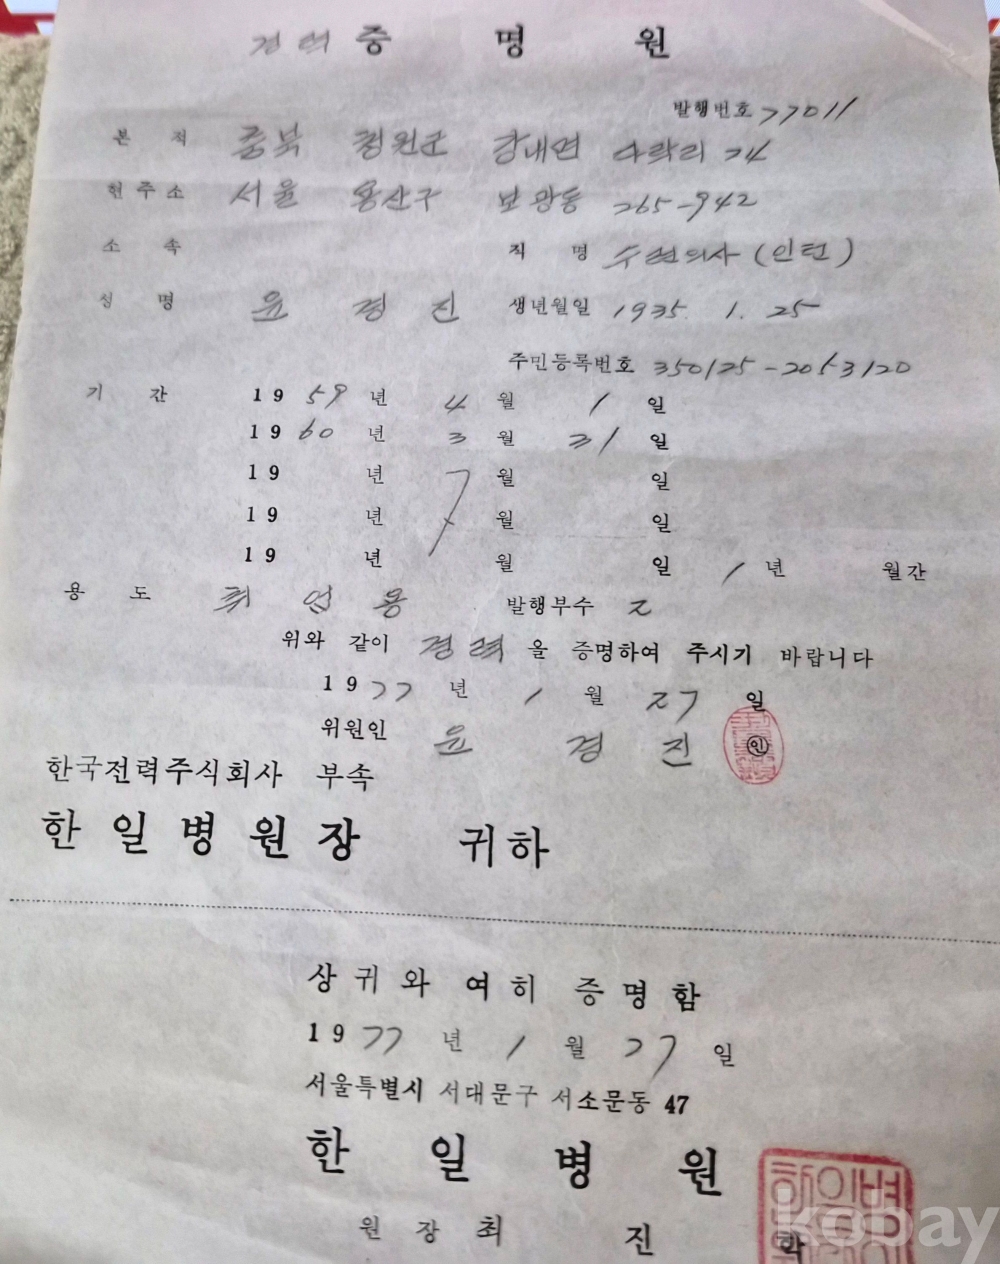 경력 증 명 원
발행번호 77011
본 적 충북 청원군 강내면 다락리 74
현주소 서울 용산구 보광동 265-942
소 속 직 명 수련의사 (인턴)
성 명 윤 경 진 생년월일 1935. 1. 25
주민등록번호 350125-2053120
기 간 19 59 년 4 월 1 일
19 60 년 3 월 31 일
19 년 월 일
19 년 월 일
19 년 월 일 1 년 월간
용 도 취 업 용 발행부수 2
위와 같이 경력 을 증명하여 주시기 바랍니다
19 77 년 1 월 27 일
위원인 윤 경 진 인
한국전력주식회사 부속
한 일 병 원 장 귀하
상 귀 와 여 히 증 명 함
19 77 년 1 월 27 일
서울특별시 서대문구 서소문동 47
한 일 병 원
원 장 최 진 학
한일병
kobay